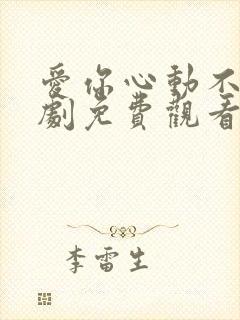 愛你心動不
劇免費觀看
李雷生